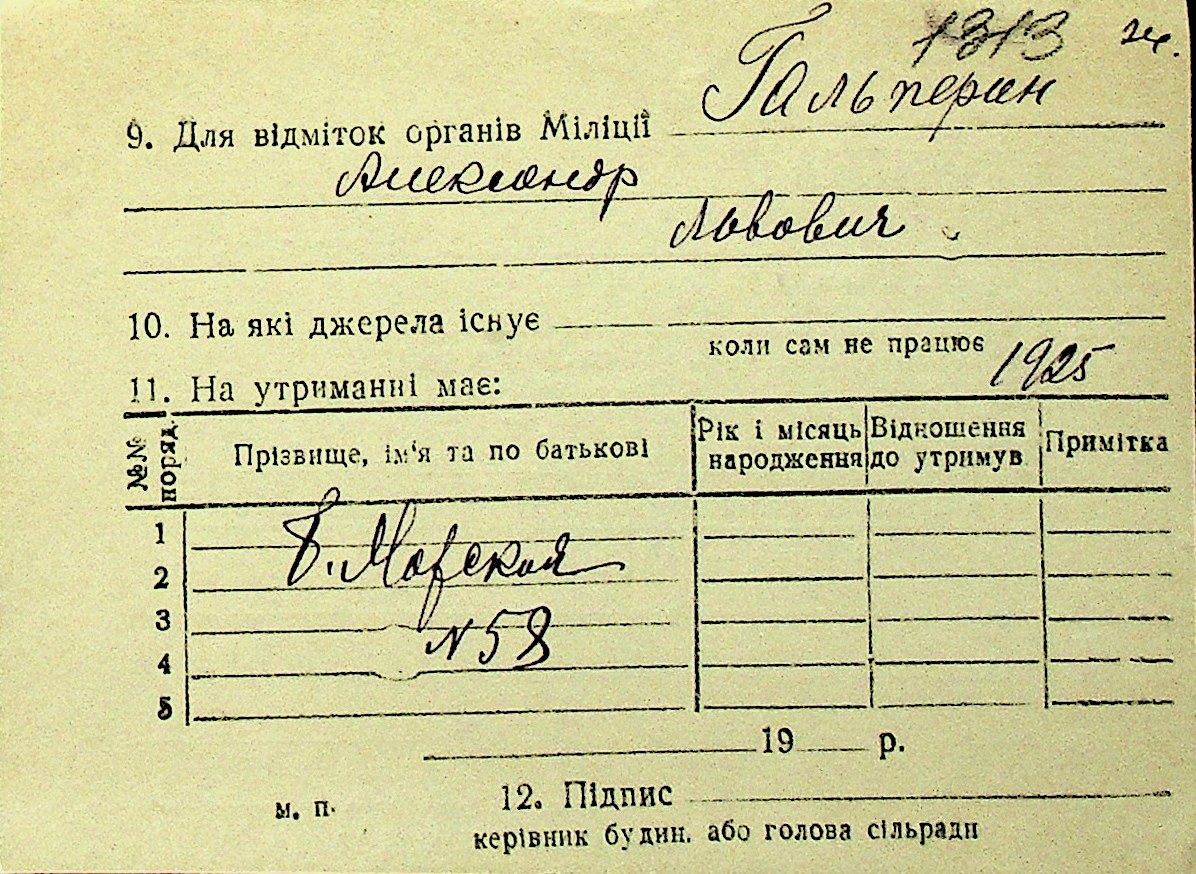 1313 ж.
9. Для відміток органів Міліції Гальперин
Александр
Львович
10. На які джерела існує
коли сам не працює
1925
11. На утриманні має:
№№ поряд. Прізвище, ім'я та по батькові Рік і місяць народження Відношення до утримув. Примітка
1
Б. Морская
2
3
N 58
4
5
19 р.
м. п. 12. Підпис
керівник будин. або голова сільради